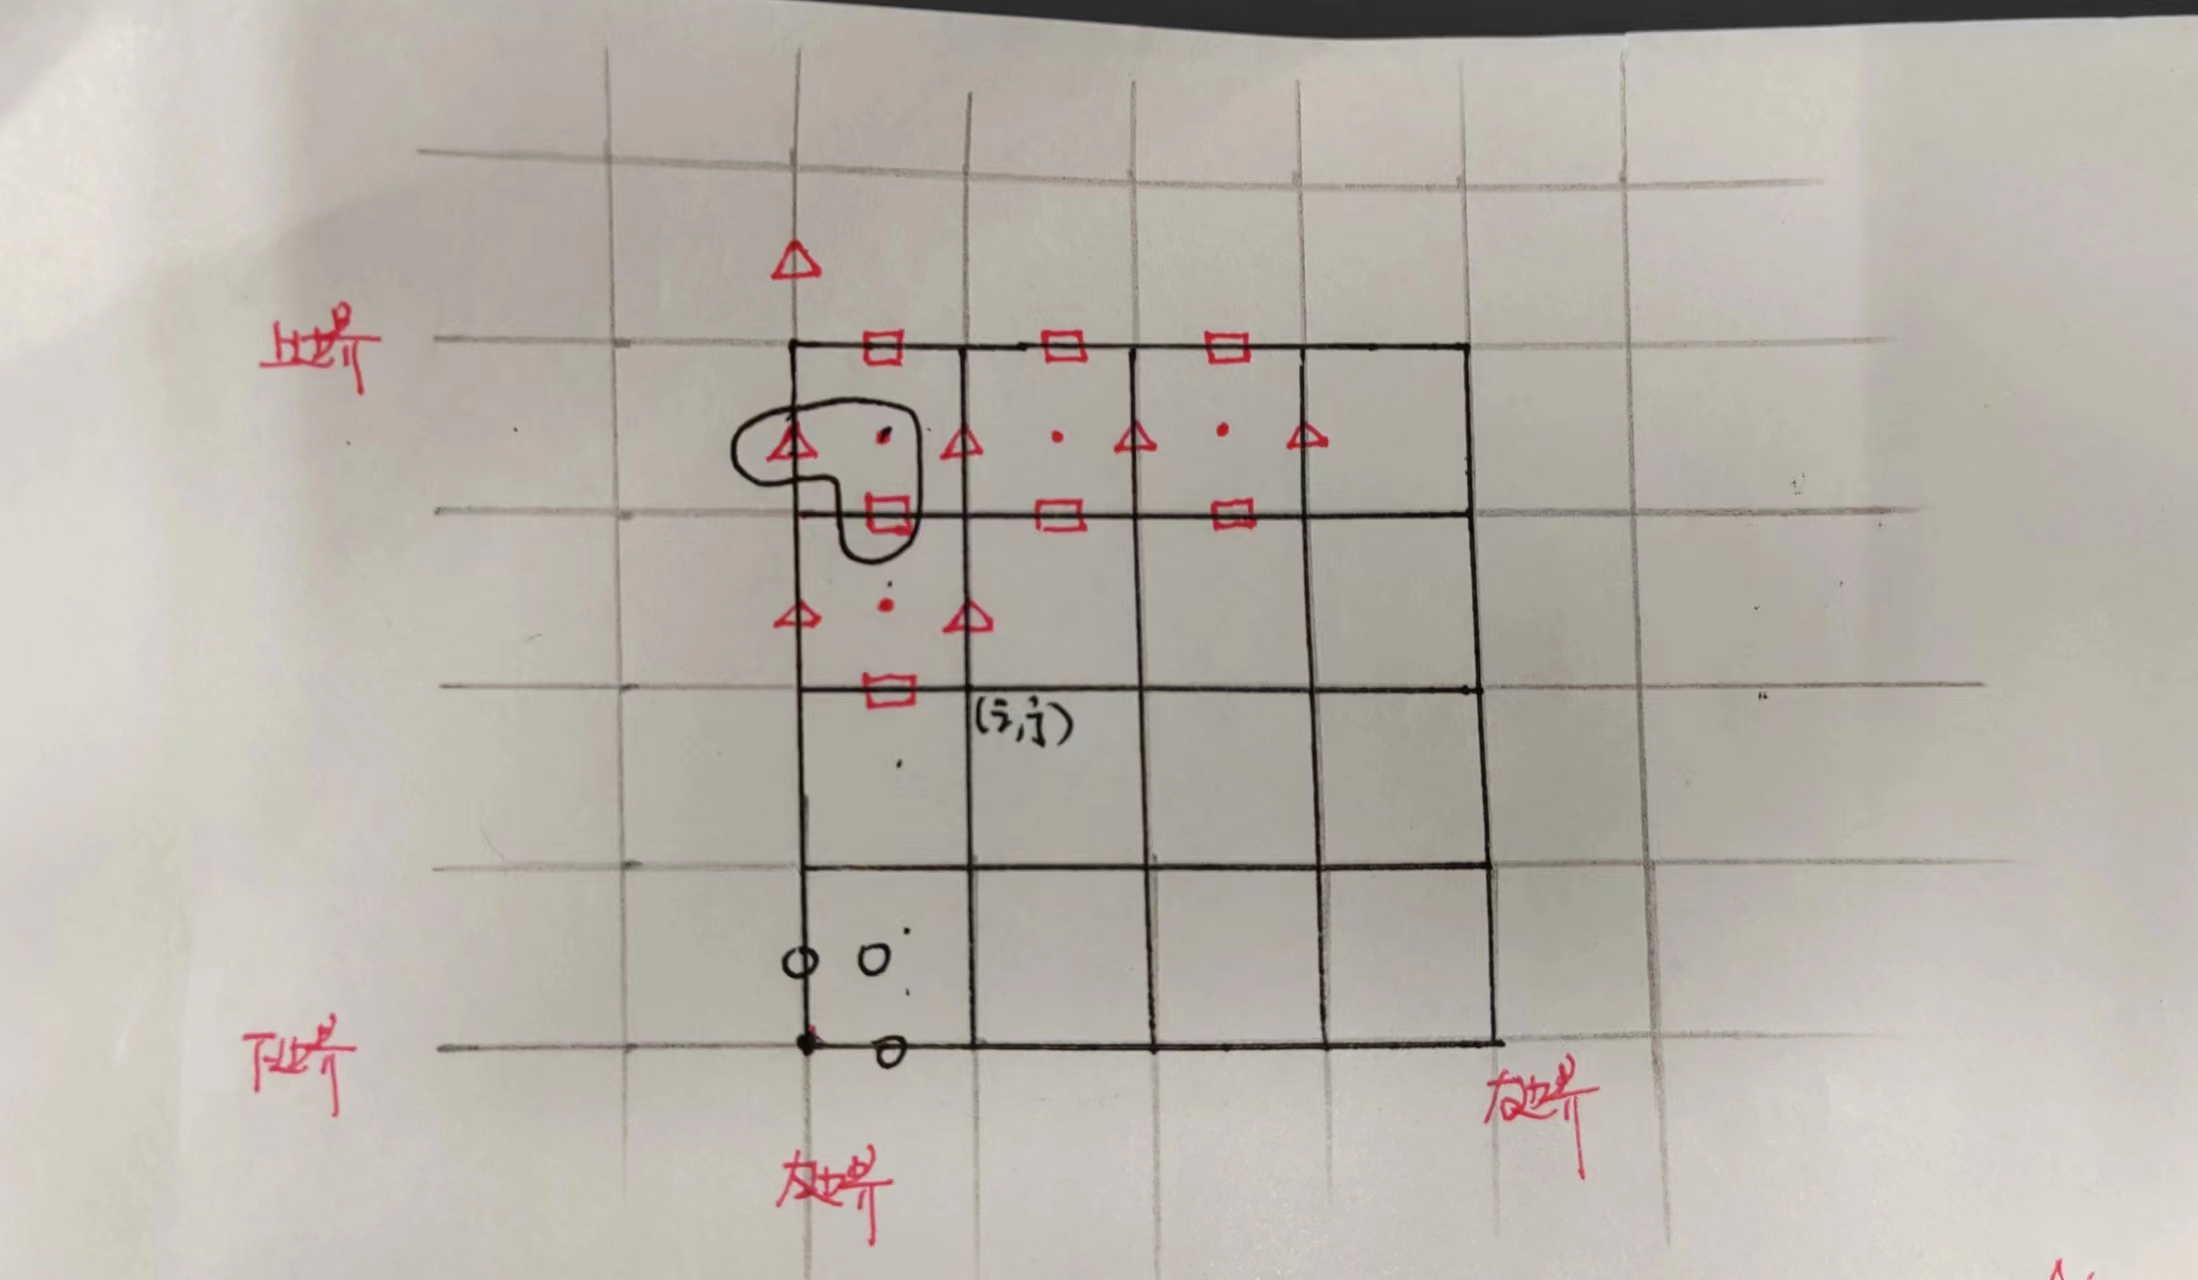 上边界
(i,j)
下边界
右边界
左边界